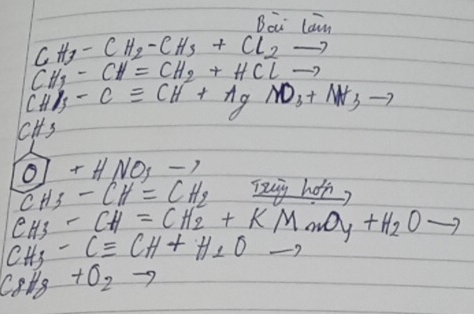 Bài làm
CH3 - CH2 - CH3 + Cl2 →
CH3 - CH = CH2 + HCl →
CH3 - C ≡ CH + AgNO3 + NH3 →
CH3
+ HNO3 →
CH3 - CH = CH2 Trùng hợp →
CH3 - CH = CH2 + KMnO4 + H2O →
CH3 - C ≡ CH + H2O →
C8H8 + O2 →